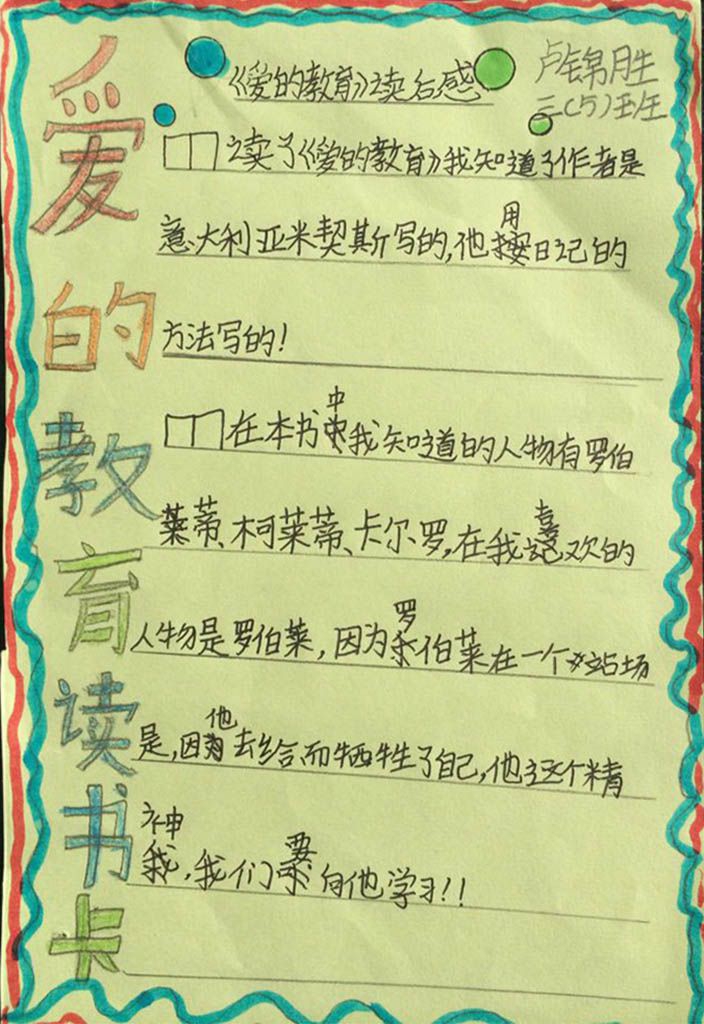 爱的教育读书卡
《爱的教育》读后感
卢锦胜
三(5)班
读了《爱的教育》我知道了作者是
意大利亚米契斯写的,他用日记的
方法写的!
在本书中我知道的人物有罗伯
莱蒂、柯莱蒂、卡尔罗,在我喜欢的
人物是罗伯莱,因为罗伯莱在一个站场
是,因他去给而牺牲了自己,他这个精
神,我们要向他学习!!